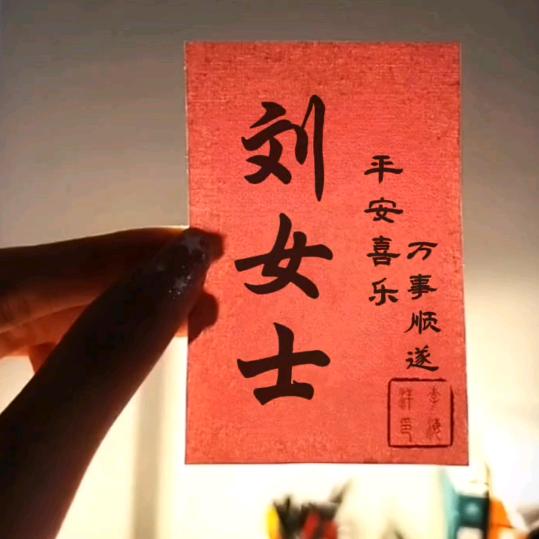 刘女士
平安喜乐
万事顺遂